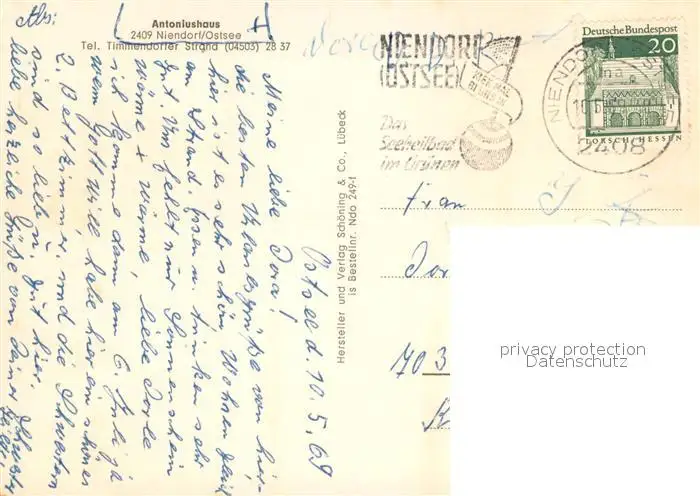 Abs:
Antoniushaus
2409 Niendorf/Ostsee
Tel. Timmendorfer Strand (04503) 28 37
Ostseed. 10.5.69
Meine liebe Dora!
die besten Urlaubsgrüße von hier.
hier ist es sehr schön. Wohnen gleich
am Strand. Essen u. trinken sehr
gut. Uns fehlt nur Sonnenschein
wärme + wärme, liebe Dorle
ich komme dann am 6. Juli ja
wenn Gott will habe hier ein schönes
2. Bettzimmer. und die Schwestern
sind so lieb zu. gut hier.
liebe herzliche Grüße von Deiner Schwester
Hersteller und Verlag Schöning & Co., Lübeck
is Bestellnr. Ndo 249-f
NIENDORF
(OSTSEE)
Das
Seeheilbad
im Grünen
NIENDORF
2408
Deutsche Bundespost
20
LORSCH/HESSEN
Frau
Dor
703
privacy protection
Datenschutz